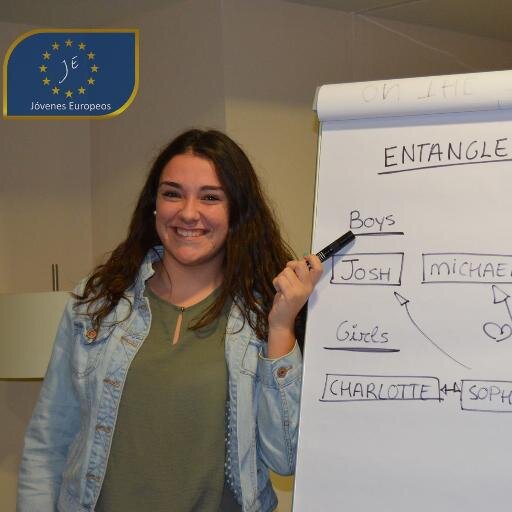 JE
Jóvenes Europeos
ON THE
ENTANGLE
Boys
JOSH
MICHAE
Girls
CHARLOTTE
SOPH